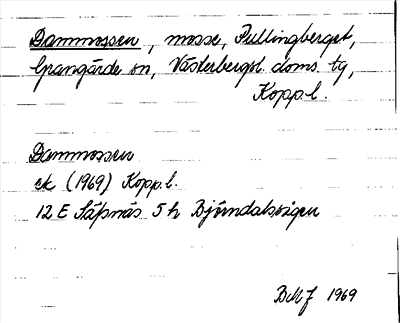 Dammossen, mosse, Pullingberget,
Grangärde sn, Västerbergsl. doms. tg,
Kopp. l.
Dammossen
ek (1969) Kopp. l.
12 E Säfsnäs 5 h Björndalsvägen
1969